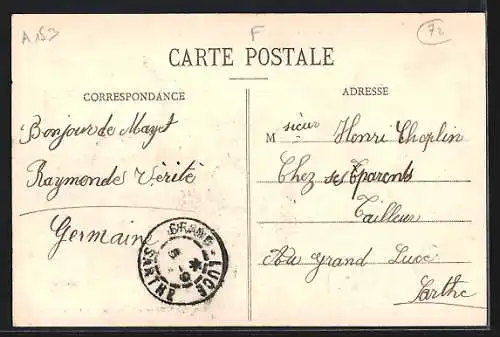 A153
F
72
CARTE POSTALE
CORRESPONDANCE
Bonjour de Mayet
Raymonde Vérité
Germaine
ADRESSE
Msieur Henri Choplin
Chez ses parents
Tailleur
Au Grand Lucé
Sarthe
GRAND-LUCÉ
SARTHE